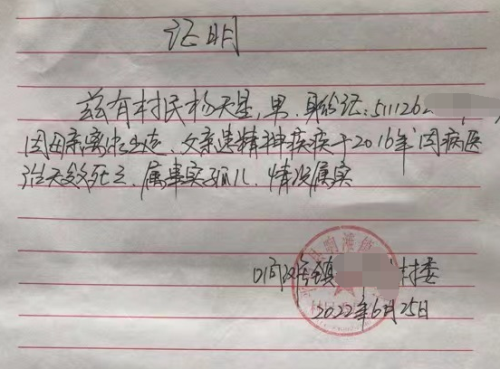 证明
兹有村民杨天星,男.身份证:511126
因母亲离家出走、父亲遗精神疾病于2016年因病医
治无效死亡.属事实孤儿.情况属实
镇 村委
2022年6月25日